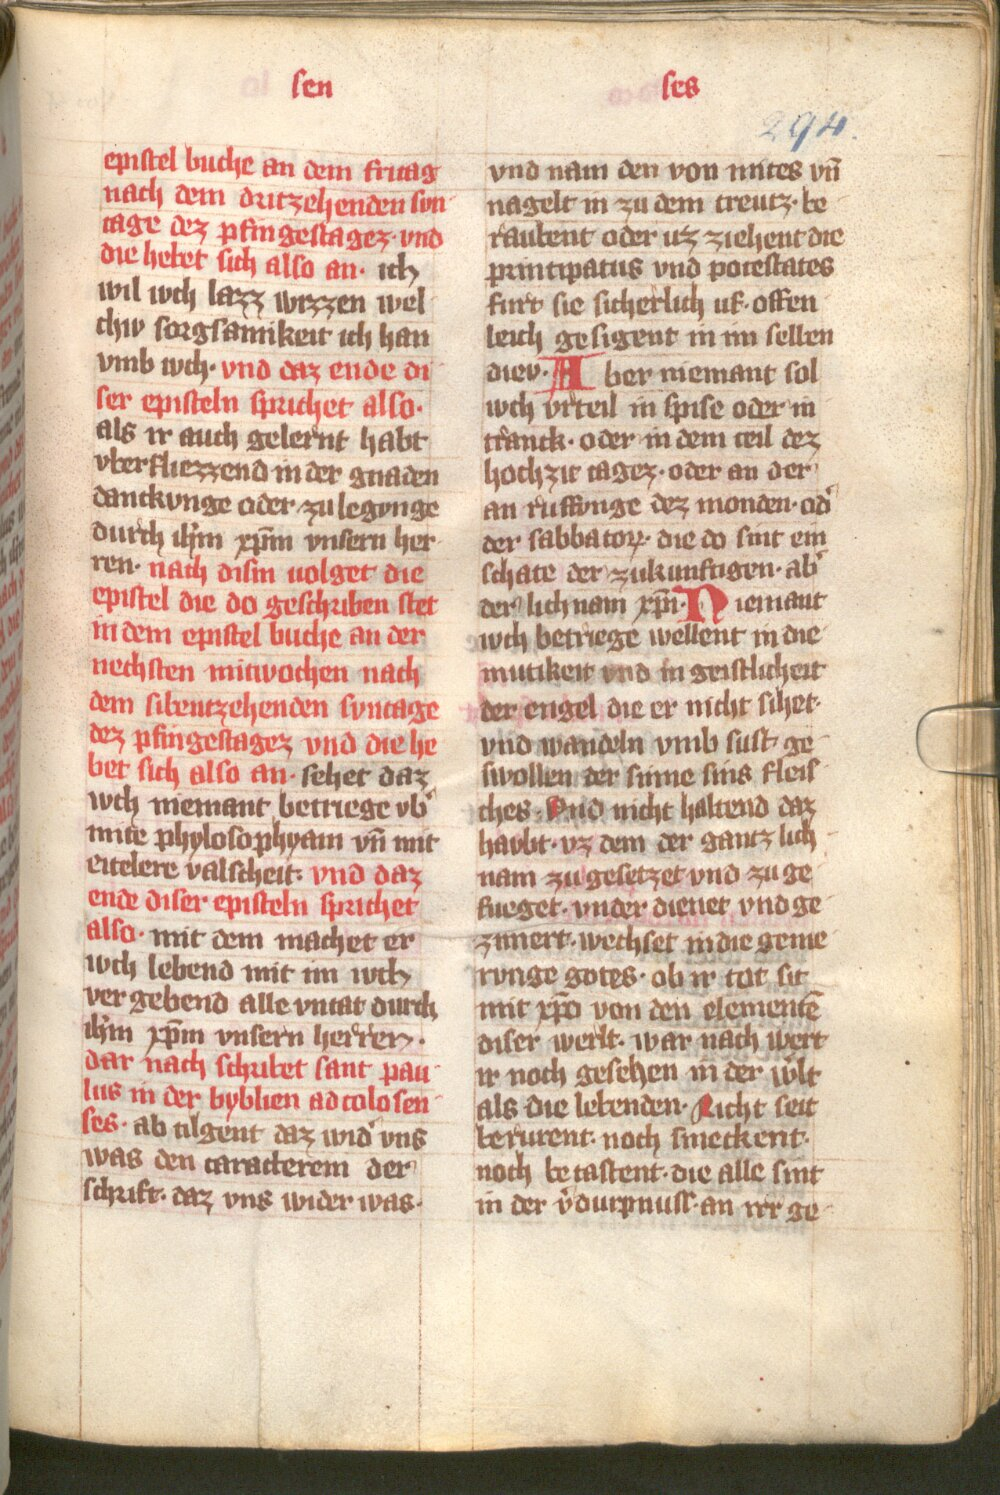 sen
ses
294.
epistel buche an dem fritag
nach dem dritzehenden svn
tage dez pfingestagez · vnd
die hebet sich also an · ich
wil wch lazz wizzen wel
chiv sorgsamikeit ich han
vmb wch · vnd daz ende di
ser episteln sprichet also ·
als ir auch gelernt habt
vberfliezzend in der gnaden
danckvnge oder zu legvnge
durch ihm xp̄m vnsern her
ren · nach disin volget die
epistel die do geschriben stet
in dem epistel buche an der
nechsten mitwochen nach
dem sibentzehenden svntage
dez pfingestagez vnd die he
bet sich also an · sehet daz
wch niemant betriege vb᾽
mite phylosophyam vn̄ mit
eitelere valscheit · vnd daz
ende diser episteln sprichet
also · mit dem machet er
wch lebend mit im wch
ver gebend alle vntat durch
ihm xp̄m vnsern herren ·
dar nach schribet sant pau
lus in der byblien ad colosen
ses · ab tilgent daz wid᾽ vns
was den caracterem der
schrift · daz vns wider was ·
vnd nam den von mites vn̄
nagelt in zu dem creutz · be
raubent oder uz ziehent die
principatus vnd potestates
furt sie sicherlich uf · offen
leich gesigent in im selben
diev · Aber niemant sol
wch vrteil in spise oder in
tranck · oder in dem teil dez
hochzit tagez · oder an der
an ruffvnge dez monden · od᾽
der sabbatorꝝ · die do sint ein
schate der zukunftigen · ab᾽
der lichnam xp̄i · Niemant
wch betriege wellent in die
mutikeit vnd in geistlicheit
der engel die er nicht sihet ·
vnd wandeln vmb sust ge
swollen der sinne sins fleis
ches · Vnd nicht haltend daz
havbt · vz dem der gantz lich
nam zu gesetzet vnd zu ge
fueget · vnder dienet vnd ge
zimert · wechset in die geme
rvnge gotes · ob ir tot sit
mit xp̄o von den elementē
diser werlt · war nach wert
ir noch gesehen in der w᾽lt
als die lebenden · Nicht seit
berurent · noch smeckent ·
noch betastent · die alle sint
in der v᾽durpnuss · an irr ge